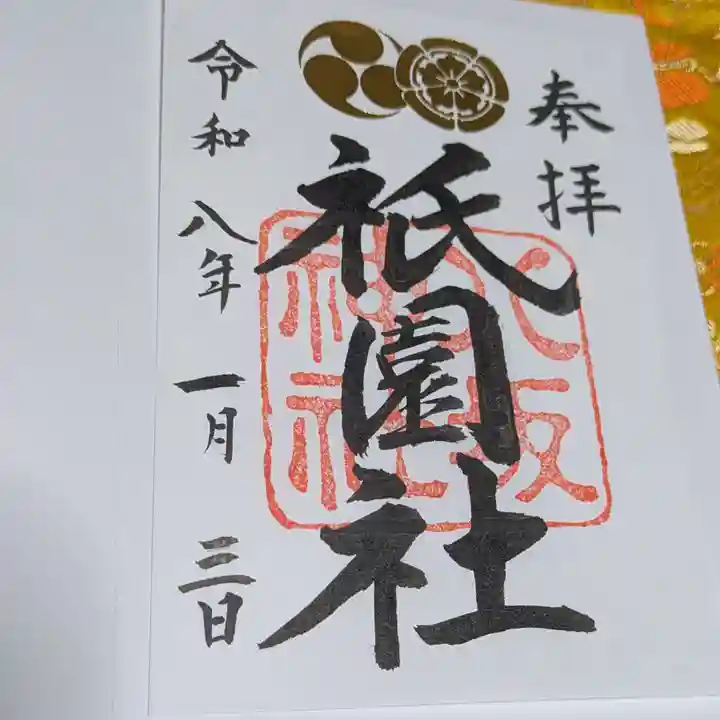 奉拝
祇園社
八坂
神社
令和八年一月三日